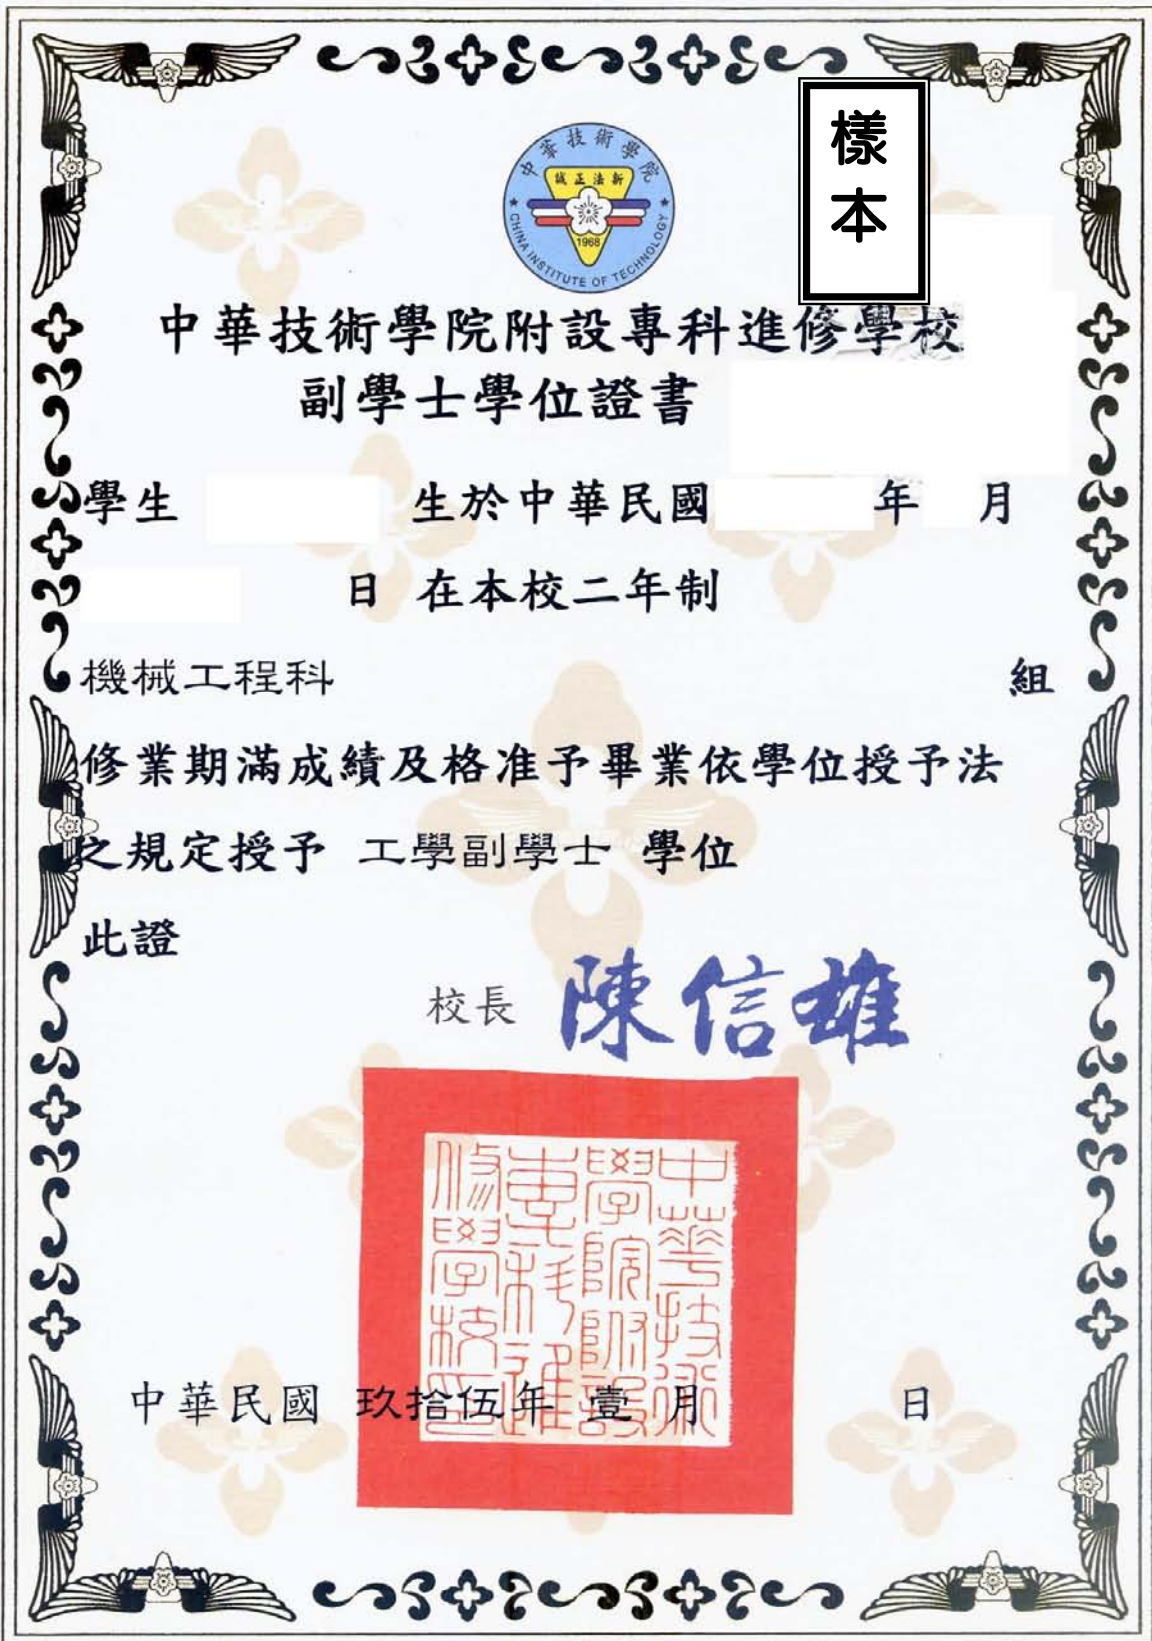 樣本
中華技術學院
誠正法新
1968
CHINA INSTITUTE OF TECHNOLOGY
中華技術學院附設專科進修學校
副學士學位證書
學生 生於中華民國 年 月
日 在本校二年制
機械工程科 組
修業期滿成績及格准予畢業依學位授予法
之規定授予 工學副學士 學位
此證
校長 陳信雄
中華技術
學院附設
專科進
修學校印
中華民國 玖拾伍年 壹 月 日